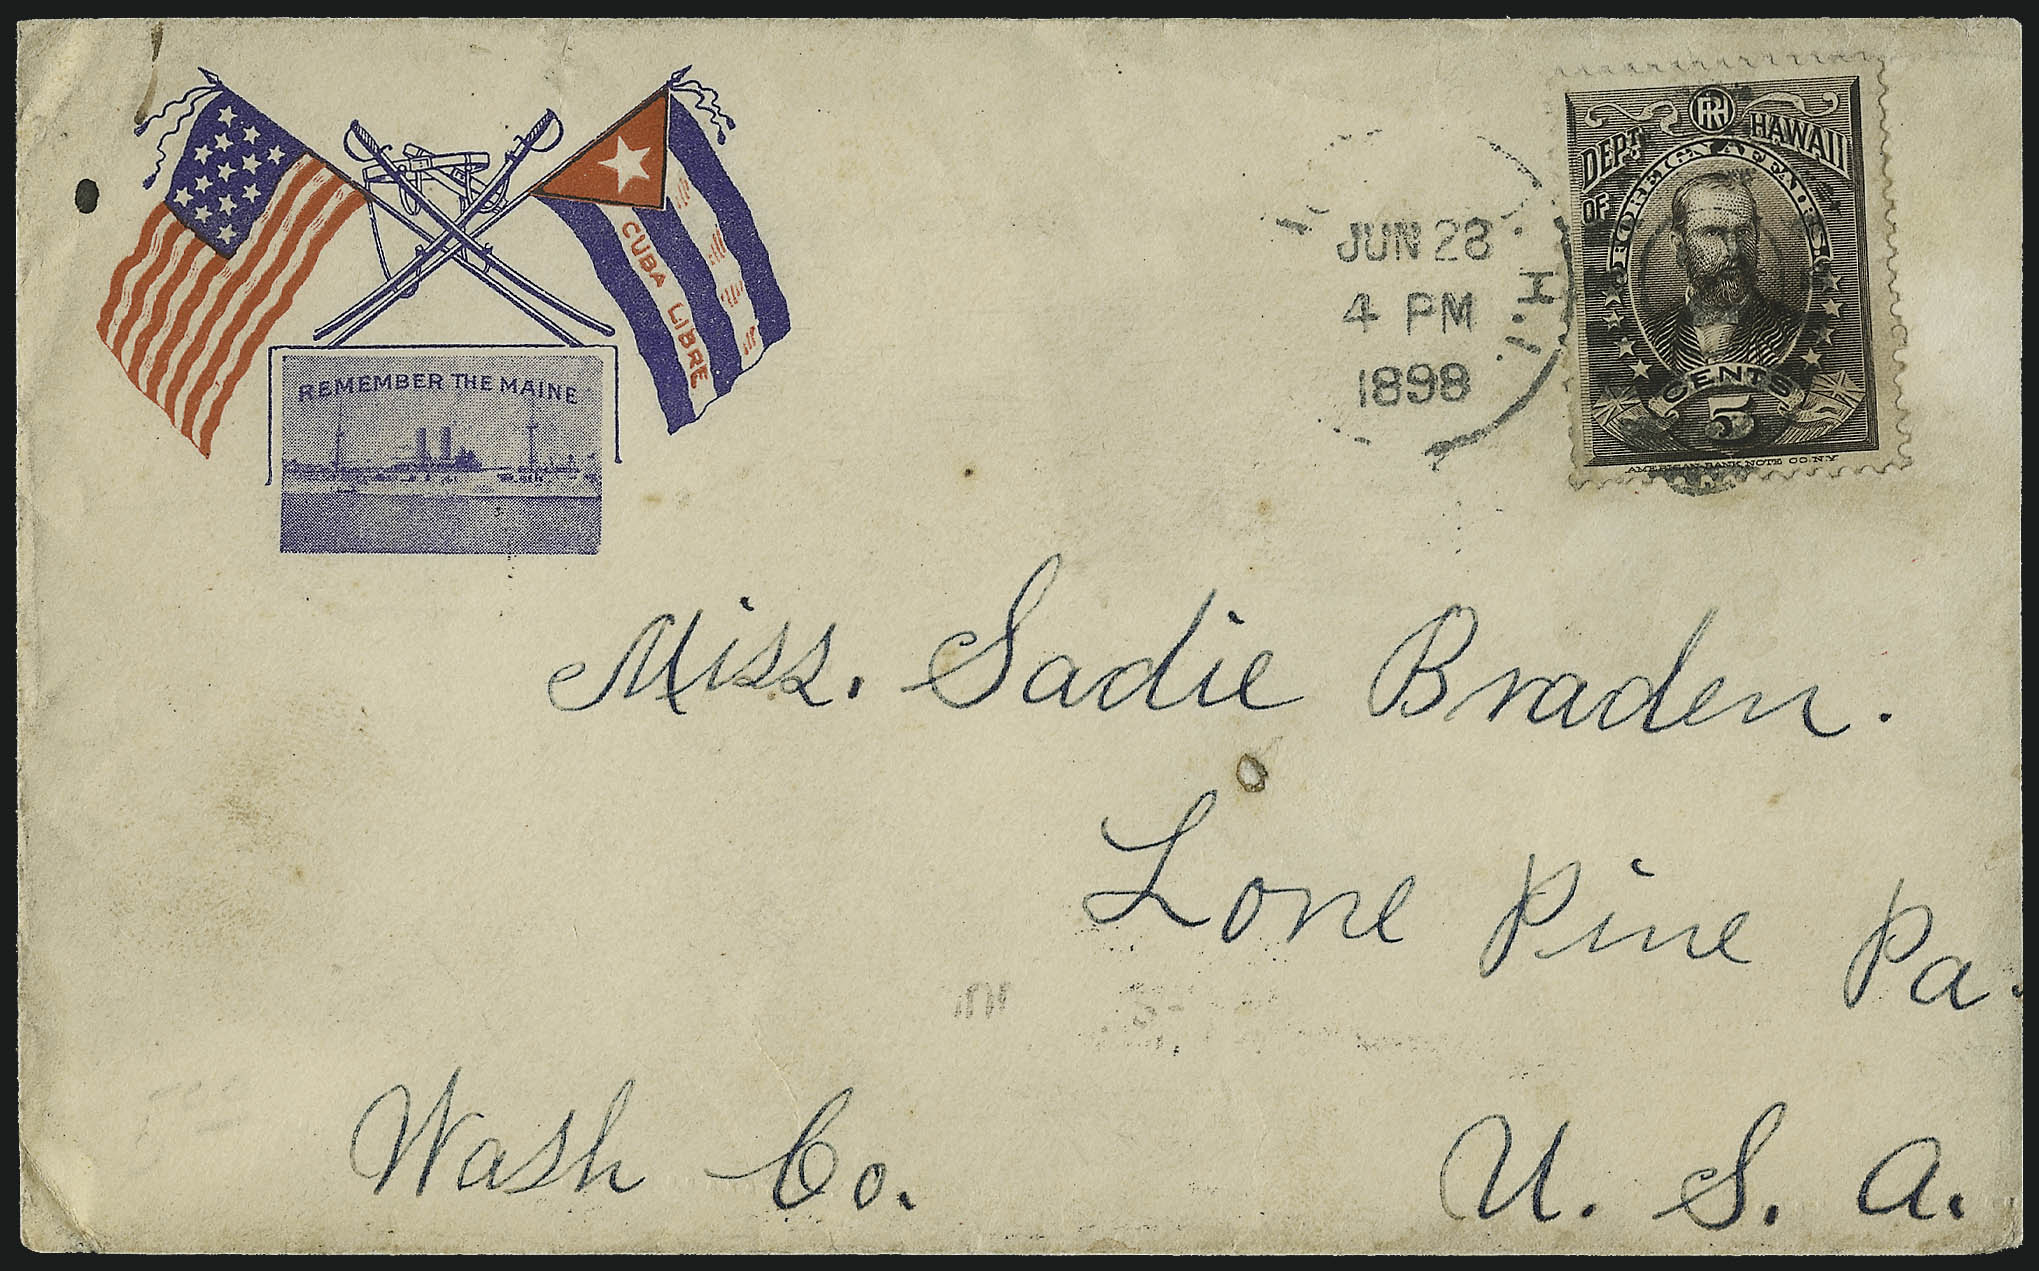 REMEMBER THE MAINE
CUBA LIBRE
JUN 28
4 PM
1898
H.I.
RH
DEPT OF HAWAII
FOREIGN AFFAIRS
CENTS
5
AMERICAN BANK NOTE CO. N.Y.
Miss. Sadie Braden.
Lone Pine Pa.
Wash Co. U. S. A.